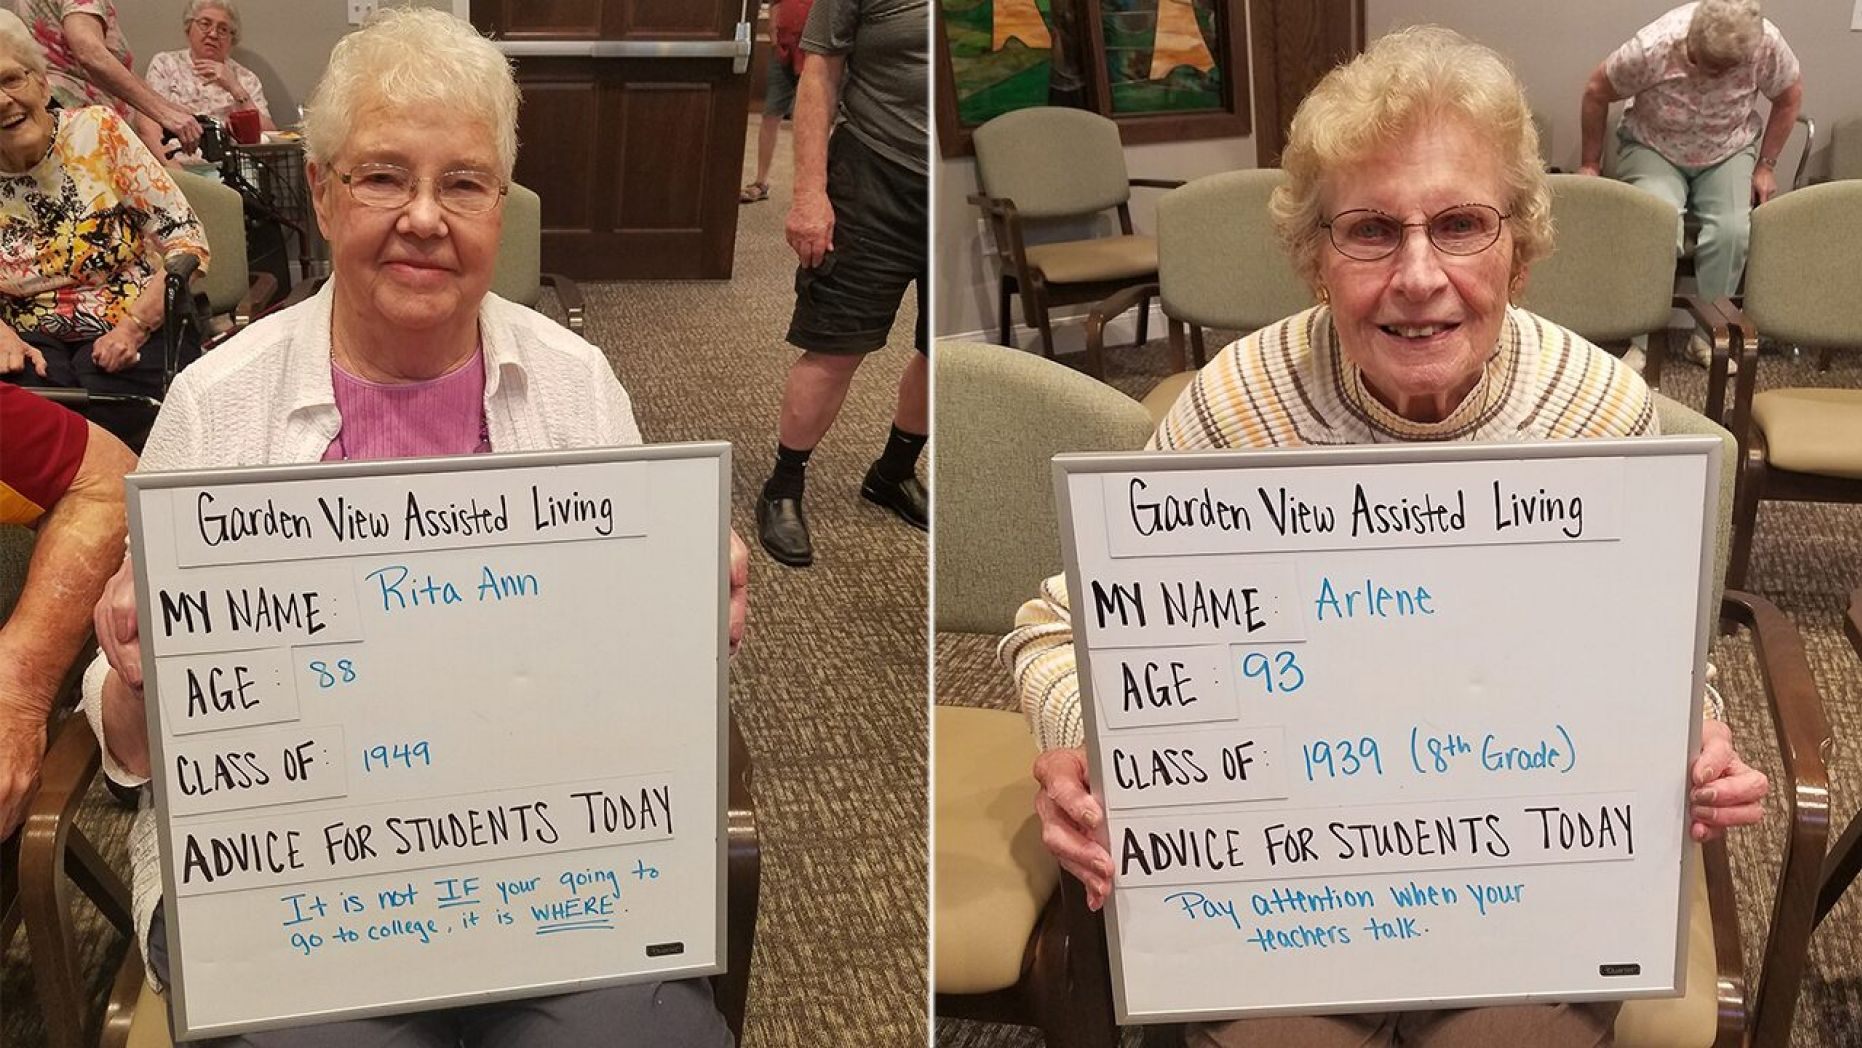 Garden View Assisted Living
MY NAME: Rita Ann
AGE: 88
CLASS OF: 1949
ADVICE FOR STUDENTS TODAY
It is not IF your going to
go to college, it is WHERE.
Quartet
Garden View Assisted Living
MY NAME: Arlene
AGE: 93
CLASS OF: 1939 (8th Grade)
ADVICE FOR STUDENTS TODAY
Pay attention when your
teachers talk.
Quartet